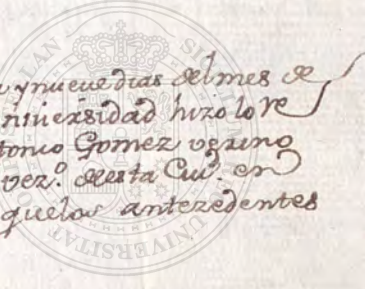 y nueve dias del mes de
niversidad hizo lo re
tonio Gomez vezino
vez.º de esta Ciu.d en
quelos antezedentes